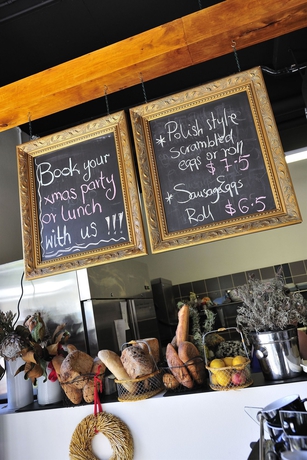 Book your
xmas party
or lunch
with us !!!
* Polish style
scrambled
eggs or roll
$7.5
* Sausage eggs
Roll $6.5